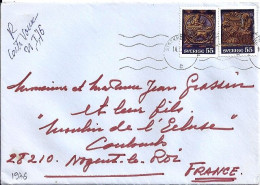 R
SVERIGE 55
SVERIGE 55
Monsieur et madame Jean Grassin
et leur fils.
"Moulin de l'Ecluse"
Coulombs
28210. Nogent-le-Roi
FRANCE.
1976